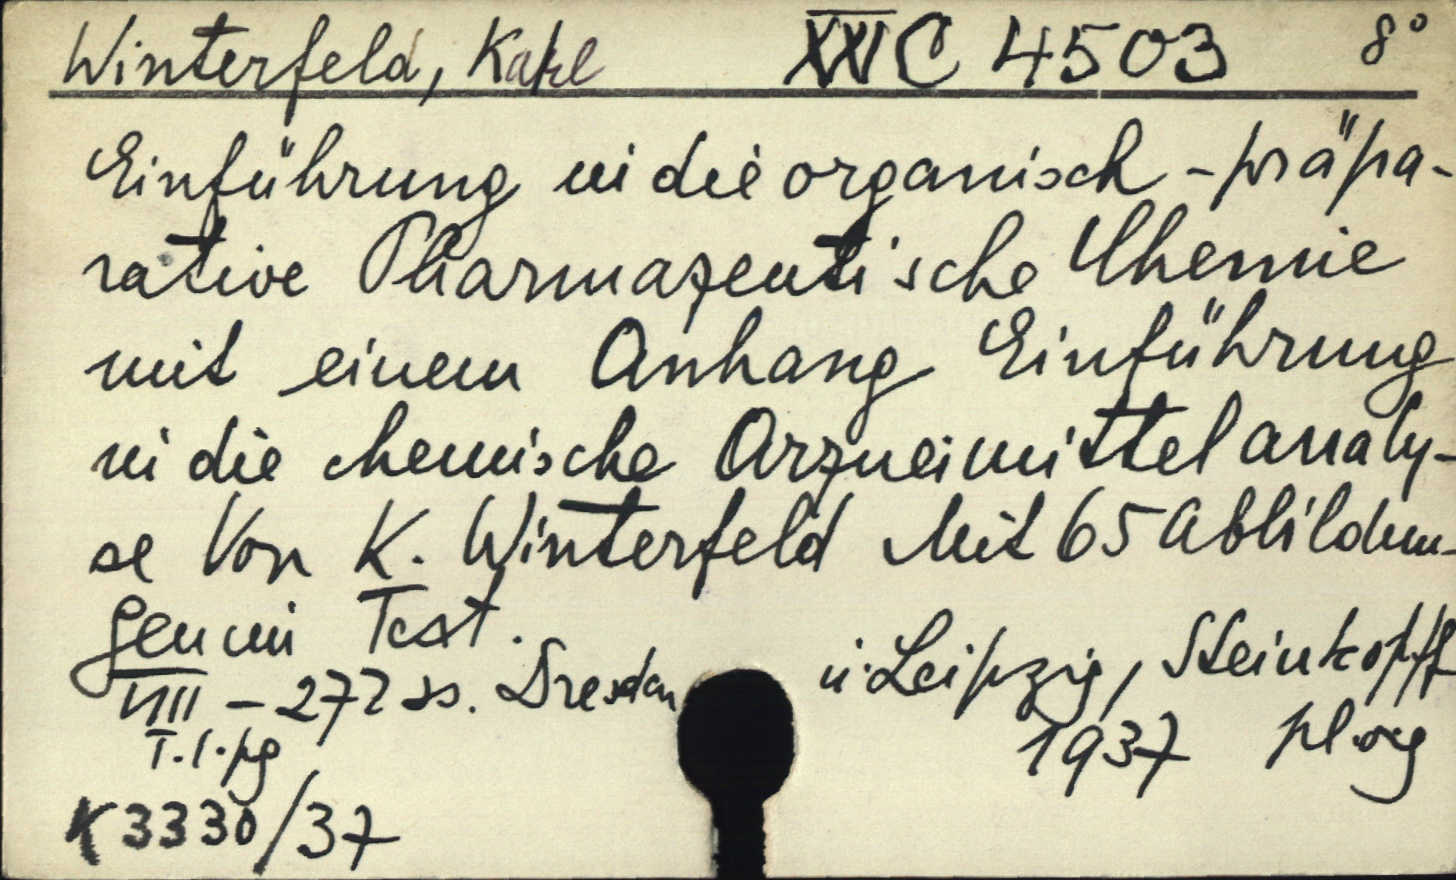 Winterfeld, Karl XXI C 4503 8°
Einführung in die organisch-präpa-
rative Pharmazeutische Chemie
mit einem Anhang Einführung
in die chemische Arzneimittelanaly-
se Von K. Winterfeld Mit 65 Abbildun-
gen im Text.
VIII - 272 ss. Dresden u. Leipzig, Steinkopff
1937
K 3330/37